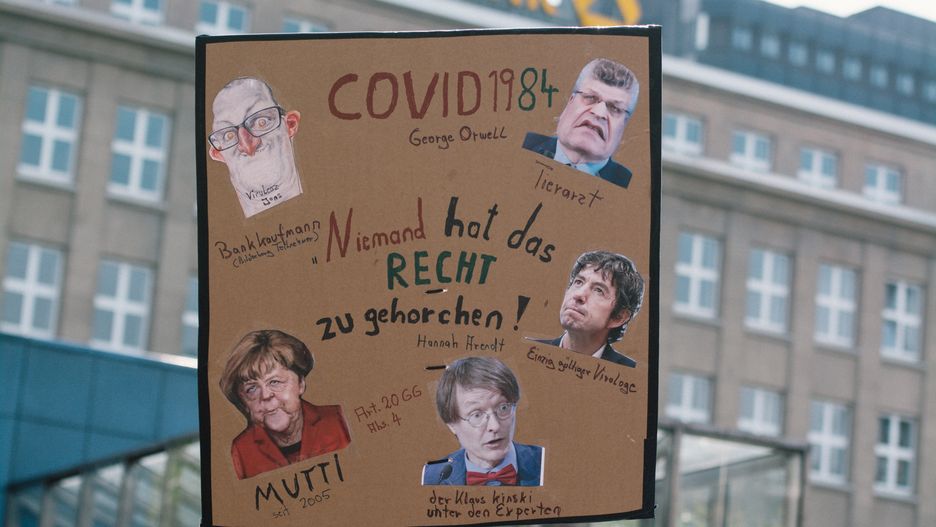 COVID1984
George Orwell
Virulenz
Jens
Tierarzt
Bankkaufmann
"Niemand hat das
RECHT
zu gehorchen!
Hannah Arendt
Einzig gültiger Virologe
Art. 20 GG
Abs. 4
MUTTI
seit 2005
der Klaus Kinski
unter den Experten